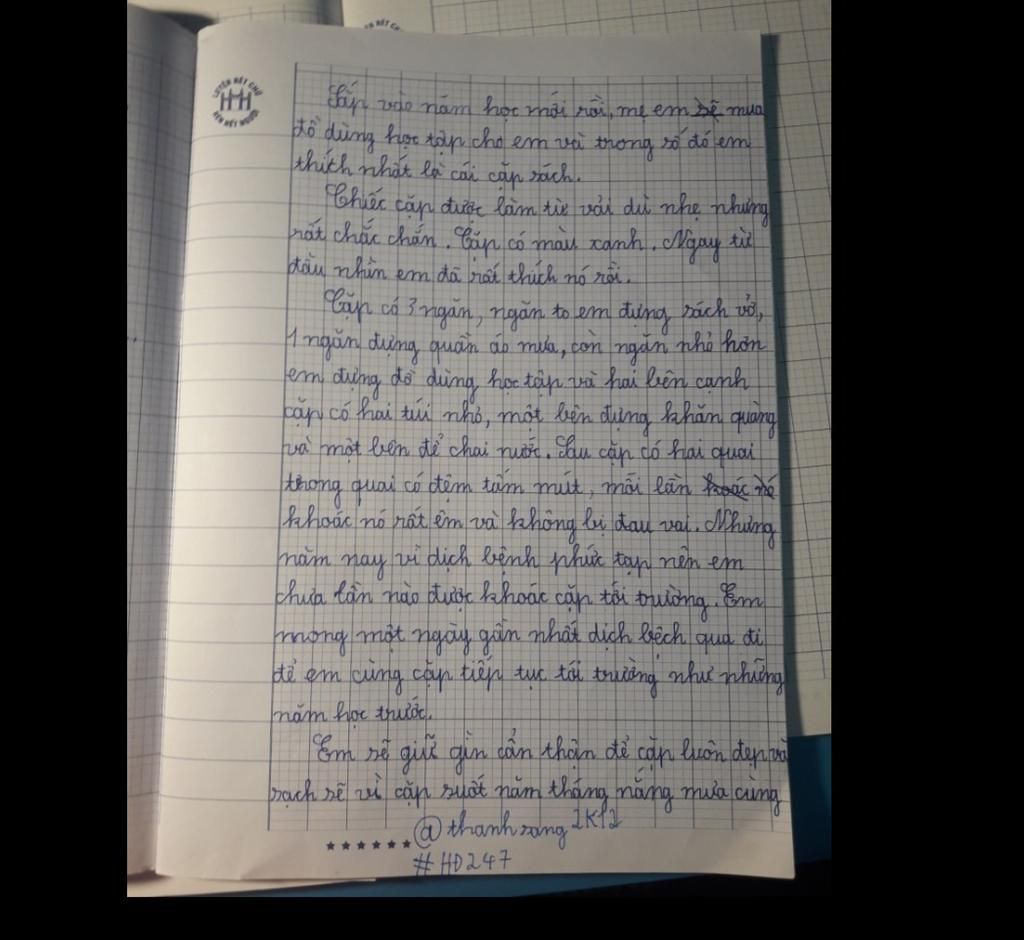 LUYỆN NÉT CHỮ
RÈN NẾT NGƯỜI
Sắp vào năm học mới rồi, mẹ em sẽ mua
đồ dùng học tập cho em và trong số đó em
thích nhất là cái cặp sách.
Chiếc cặp được làm từ vải dù nhẹ nhưng
rất chắc chắn. Cặp có màu xanh. Ngay từ
đầu nhìn em đã rất thích nó rồi.
Cặp có 3 ngăn, ngăn to em đựng sách vở,
1 ngăn đựng quần áo mưa, còn ngăn nhỏ hơn
em đựng đồ dùng học tập và hai bên cạnh
cặp có hai túi nhỏ, một bên đựng khăn quàng
và một bên để chai nước. Sau cặp có hai quai
trong quai có đệm tấm mút, mỗi lần khoác nó
khoác nó rất êm và không bị đau vai. Nhưng
năm nay vì dịch bệnh phức tạp nên em
chưa lần nào được khoác cặp tới trường. Em
mong một ngày gần nhất dịch bệch qua đi
để em cùng cặp tiếp tục tới trường như những
năm học trước.
Em sẽ giữ gìn cẩn thận để cặp luôn đẹp và
sạch sẽ vì cặp suốt năm tháng nắng mưa cùng
@thanhsang2K12
#HD247